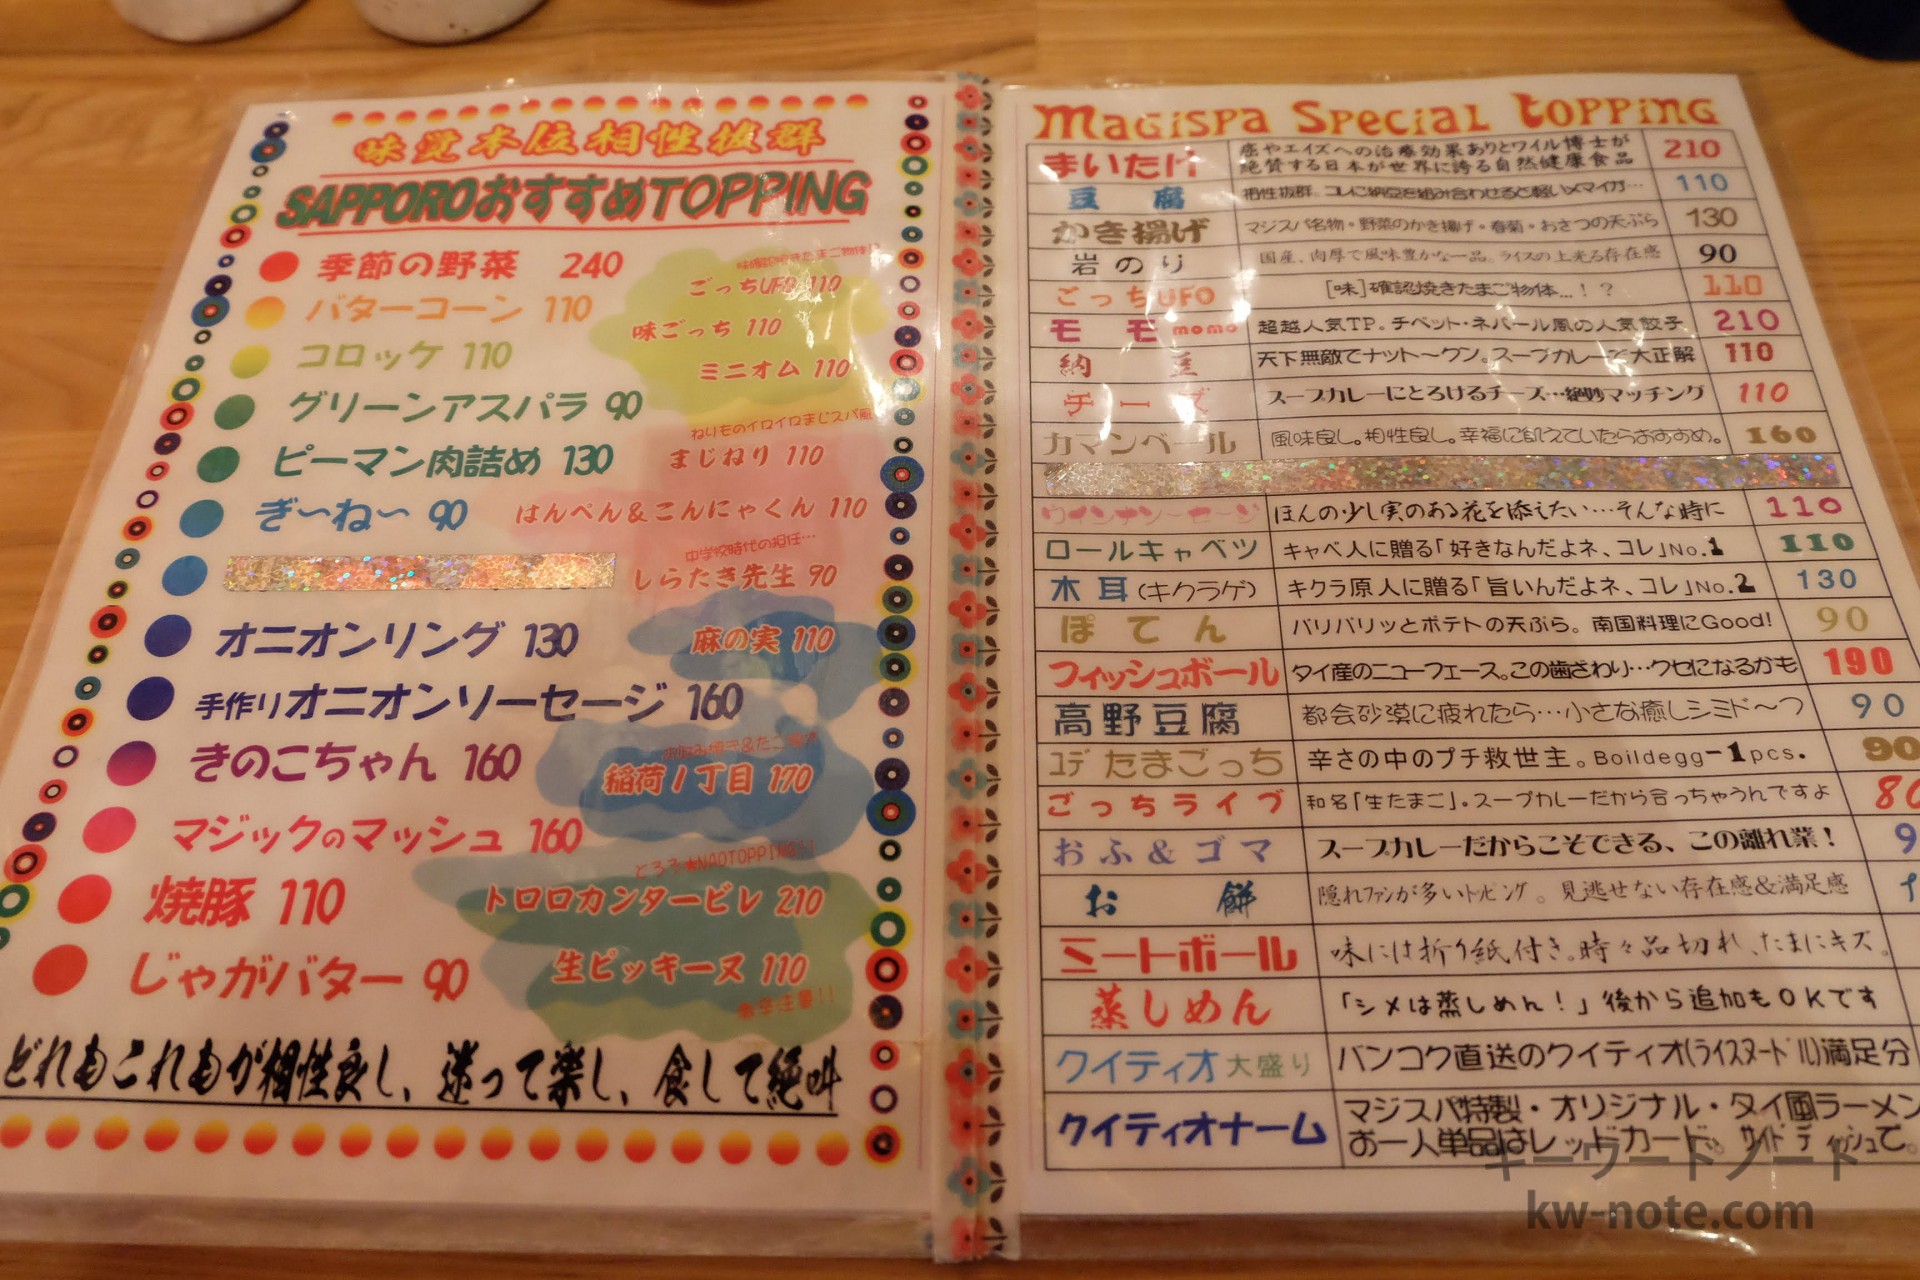 味覚本位相性抜群
SAPPOROおすすめTOPPING
季節の野菜 240
バターコーン 110
コロッケ 110
グリーンアスパラ 90
ピーマン肉詰め 130
ぎ〜ね〜 90
オニオンリング 130
手作りオニオンソーセージ 160
きのこちゃん 160
マジックのマッシュ 160
焼豚 110
じゃがバター 90
ごっちUFO 110
味ごっち 110
ミニオム 110
ねりものイロイロまじスパ風
まじねり 110
はんぺん&こんにゃくん 110
中学校時代の担任…
しらたき先生 90
麻の実 110
稲荷1丁目 170
とろろ★NAOTOPPING!!
トロロカンタービレ 210
生ピッキーヌ 110
激辛注意!!
どれもこれもが相性良し、迷って楽し、食して絶叫
MAGISPA SPECIAL TOPPING
まいたけ 癌やエイズへの治療効果ありとワイル博士が 210
絶賛する日本が世界に誇る自然健康食品
豆腐 相性抜群。コレに納豆を組み合わせると軽いメマイガ… 110
かき揚げ マジスパ名物・野菜のかき揚げ・春菊・おさつの天ぷら 130
岩のり 国産、肉厚で風味豊かな一品。ライスの上光る存在感 90
ごっちUFO [味]確認焼きたまご物体…!? 110
モモ momo 超越人気TP。チベット・ネパール風の人気餃子 210
納豆 天下無敵でナット〜クン。スープカレーで大正解 110
チーズ スープカレーにとろけるチーズ…絶妙マッチング 110
カマンベール 風味良し。相性良し。幸福に飢えていたらおすすめ。 160
ウインナソーセージ ほんの少し実のある花を添えたい…そんな時に 110
ロールキャベツ キャベ人に贈る「好きなんだよネ、コレ」No.1 110
木耳(キクラゲ) キクラ原人に贈る「旨いんだよネ、コレ」No.2 130
ぽてん バリバリッとポテトの天ぷら。南国料理にGood! 90
フィッシュボール タイ産のニューフェース。この歯ざわり…クセになるかも 190
高野豆腐 都会砂漠に疲れたら…小さな癒しシミド〜つ 90
ユデたまごっち 辛さの中のプチ救世主。Boildegg-1pcs. 90
ごっちライブ 和名「生たまご」。スープカレーだから合っちゃうんですよ 80
おふ&ゴマ スープカレーだからこそできる、この離れ業! 9
お餅 隠れファンが多いトッピング。見逃せない存在感&満足感
ミートボール 味には折り紙付き。時々品切れ、たまにキズ。
蒸しめん 「シメは蒸しめん!」後から追加もOKです
クイティオ大盛り バンコク直送のクイティオ(ライスヌードル)満足分
クイティオナーム マジスパ特製・オリジナル・タイ風ラーメン
お一人単品はレッドカード。サイドディッシュで。
キーワードノート
kw-note.com